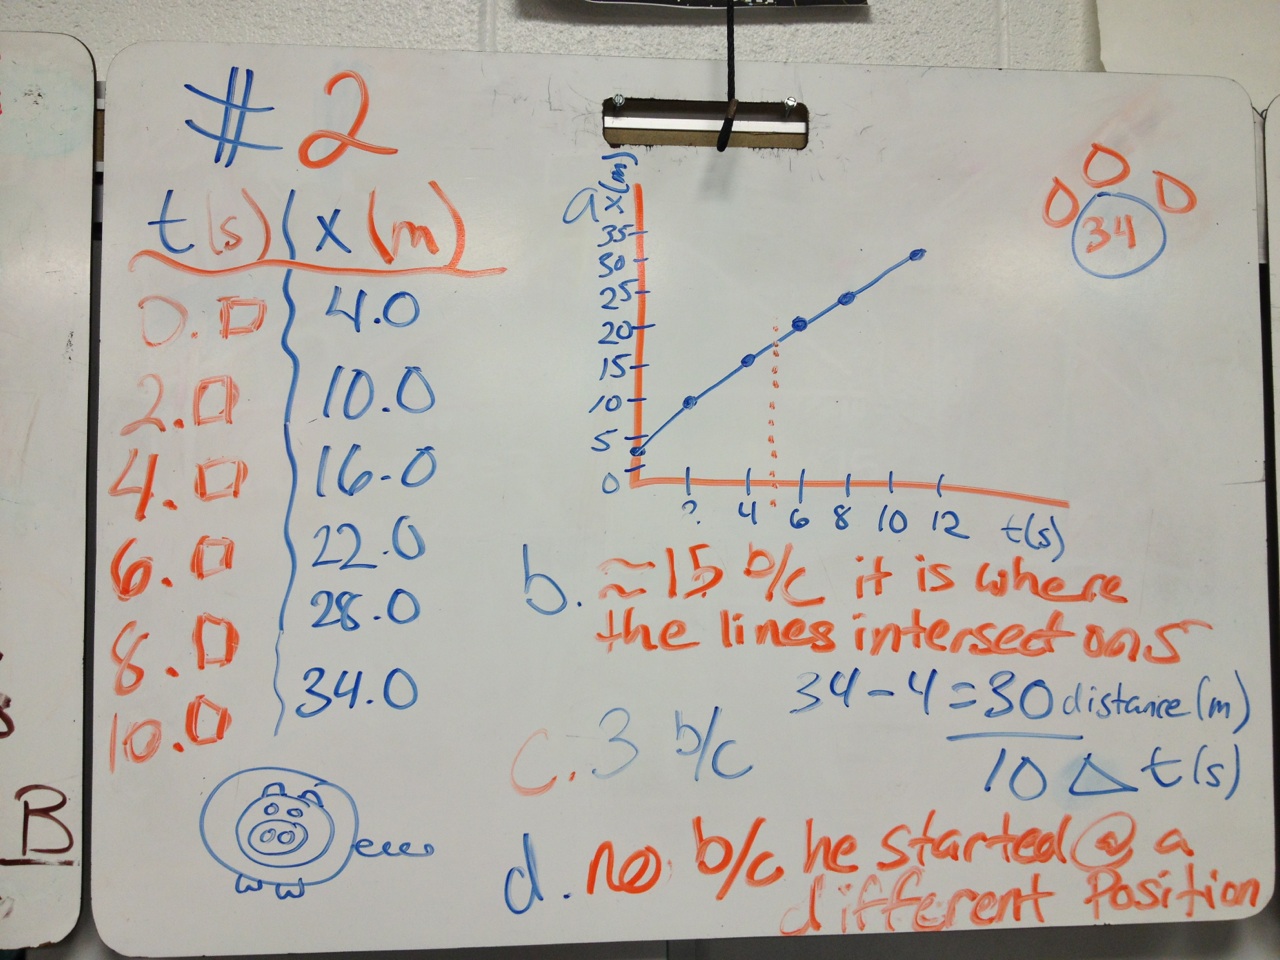 # 2
t(s) x(m)
0.0 4.0
2.0 10.0
4.0 16.0
6.0 22.0
8.0 28.0
10.0 34.0
a
x(m)
35
30
25
20
15
10
5
0
2 4 6 8 10 12 t(s)
34
b. ≈15 b/c it is where
the lines intersect on 5
34-4=30 distance(m)
10 △ t(s)
c. 3 b/c
d. no b/c he started @ a
different Position
B